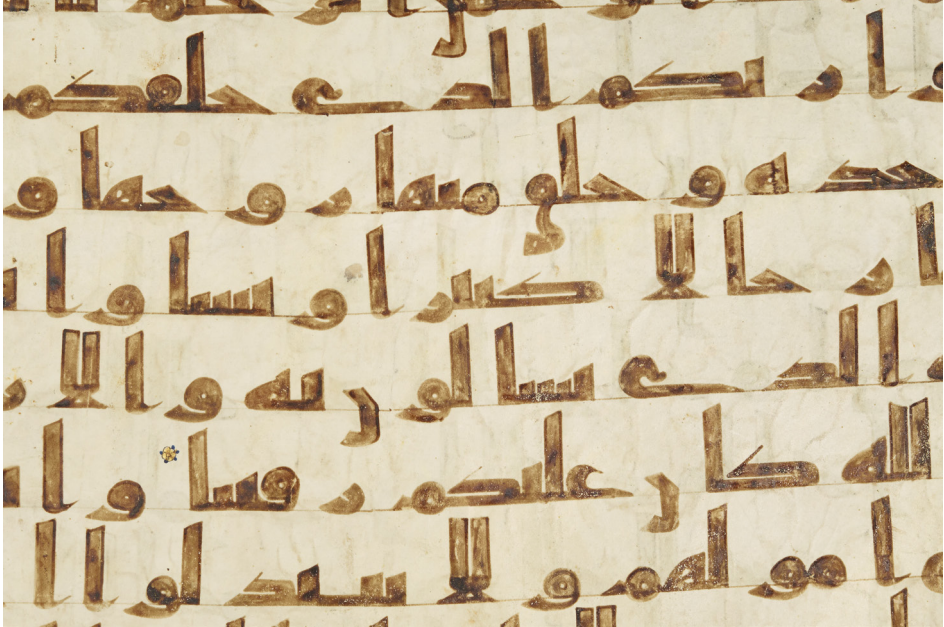 وا ربكم الذى خلقكم
حده وخلق منها زوجها و
ا رجالا كثيرا ونسا وا
ه الذى تسالون به والا
الله كان عليكم رقيبا وا
اموالهم ولا تتبدلوا ا